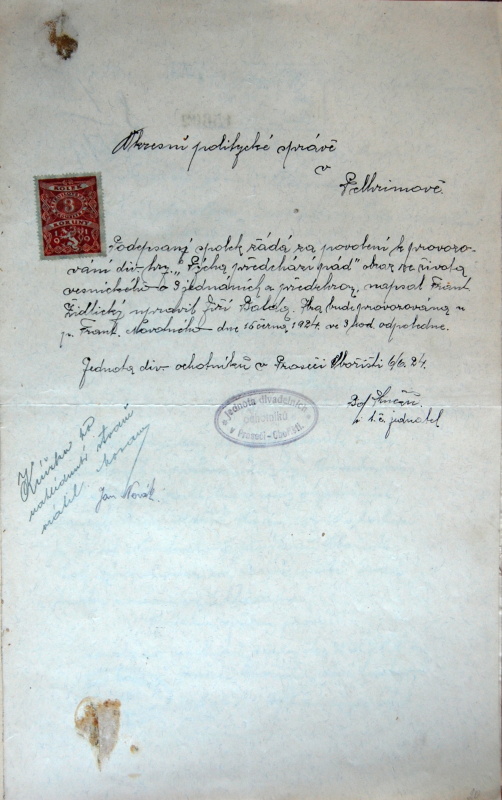 Okresní politycké správě
v
Pelhrimově.
KOLEK
3
KORUNY
Podepsaný spolek žádá za povolení k provozo-
vání div. hry „Pýcha předchází pád" obraz ze života
vesnického o 3 jednáních a předehrou, napsal Frant.
Židlický upravil Jiří Balda. Hra bude provozována u
p. Frant. Novotného dne 15 června 1924. ve 3 hod odpoledne.
Jednota div. ochotníků v Proseči Obořišti 6/6. 24.
Jednota divadelních
ochotníků
v Proseči-Obořišti.
t. č. jednatel
Jan Novák.